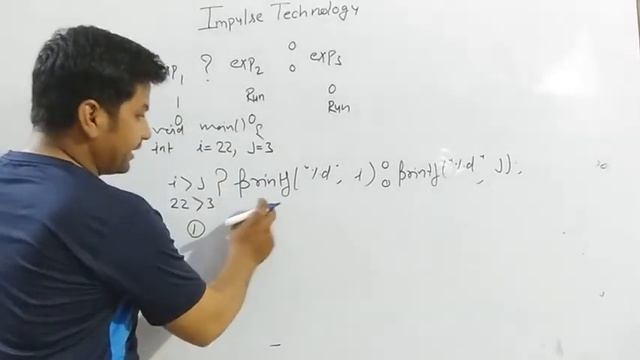 Impulse Technology
xp1 ? exp2 : exp3
1 Run 0
0 Run
void main() {
int i=22, J=3
i>J ? printf("%d", i) : printf("%d", J);
22>3
1